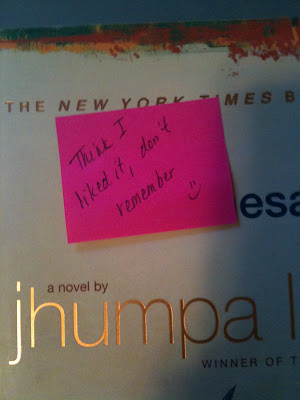 THE NEW YORK TIMES B
Think I
liked it, don't
remember
esa
a novel by
jhumpa l
WINNER OF T